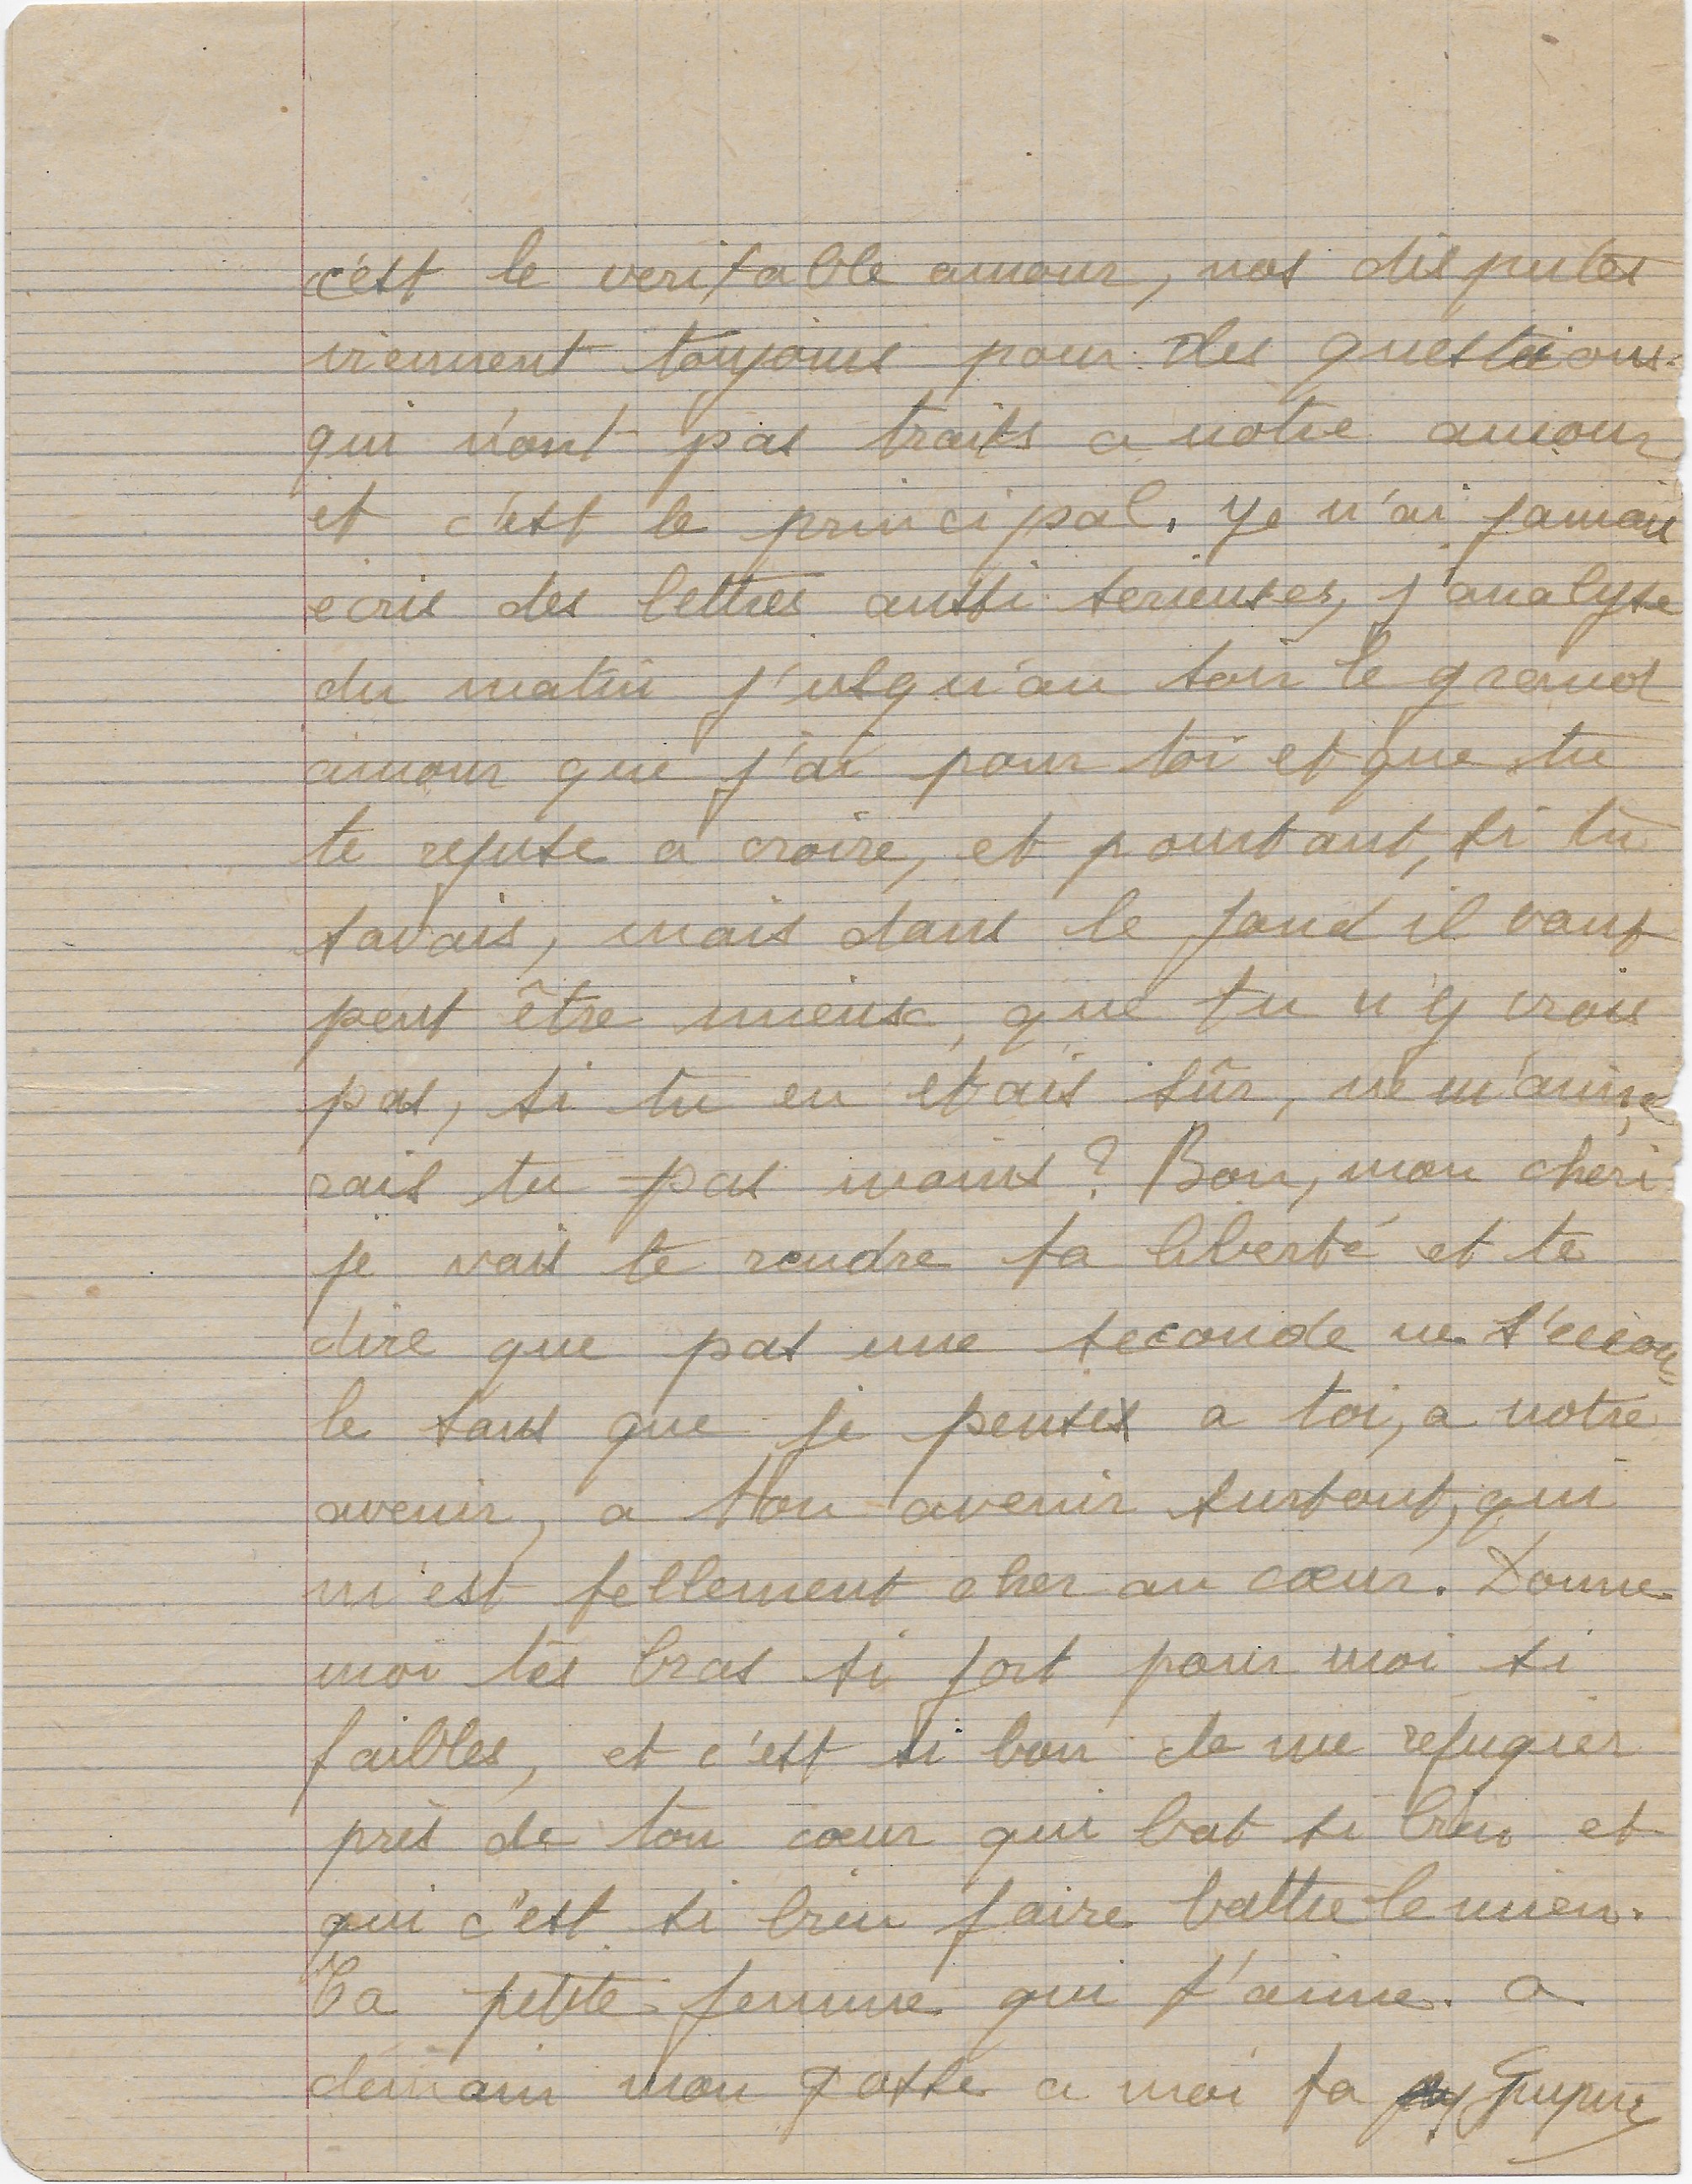 c'est le veritable amour, nos disputes
viennent toujours pour des questions
qui n'ont pas traits a notre amour
et c'est le principal. Je n'ai jamais
ecris des lettres aussi serieuses, j'analyse
du matin j'usqu'au soir le grand
amour que j'ai pour toi et que tu
te refuse a croire, et pourtant, si tu
savais, mais dans le fond il vaut
peut être mieux, que tu n'y crois
pas, si tu en etais sûr, ne m'aime
rais tu pas moins ? Bon, mon cheri
je vais te rendre ta liberté et te
dire que pas une seconde ne s'ecou
le sans que je penses a toi, a notre
avenir, a ton avenir surtout, qui
m'est tellement cher au cœur. Donne
moi tes bras si fort pour moi si
faibles, et c'est si bon de me réfugier
près de ton cœur qui bat si bien et
qui c'est si bien faire battre le mien.
Ta petite femme qui t'aime. a
demain mon gosse a moi ta